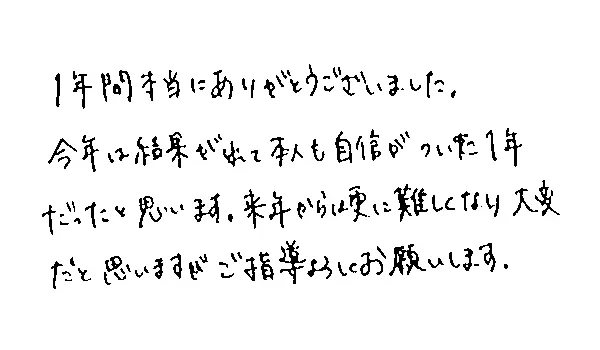 1年間本当にありがとうございました。
今年は結果が出て本人も自信がついた1年
だったと思います。来年からは更に難しくなり大変
だと思いますがご指導よろしくお願いします。